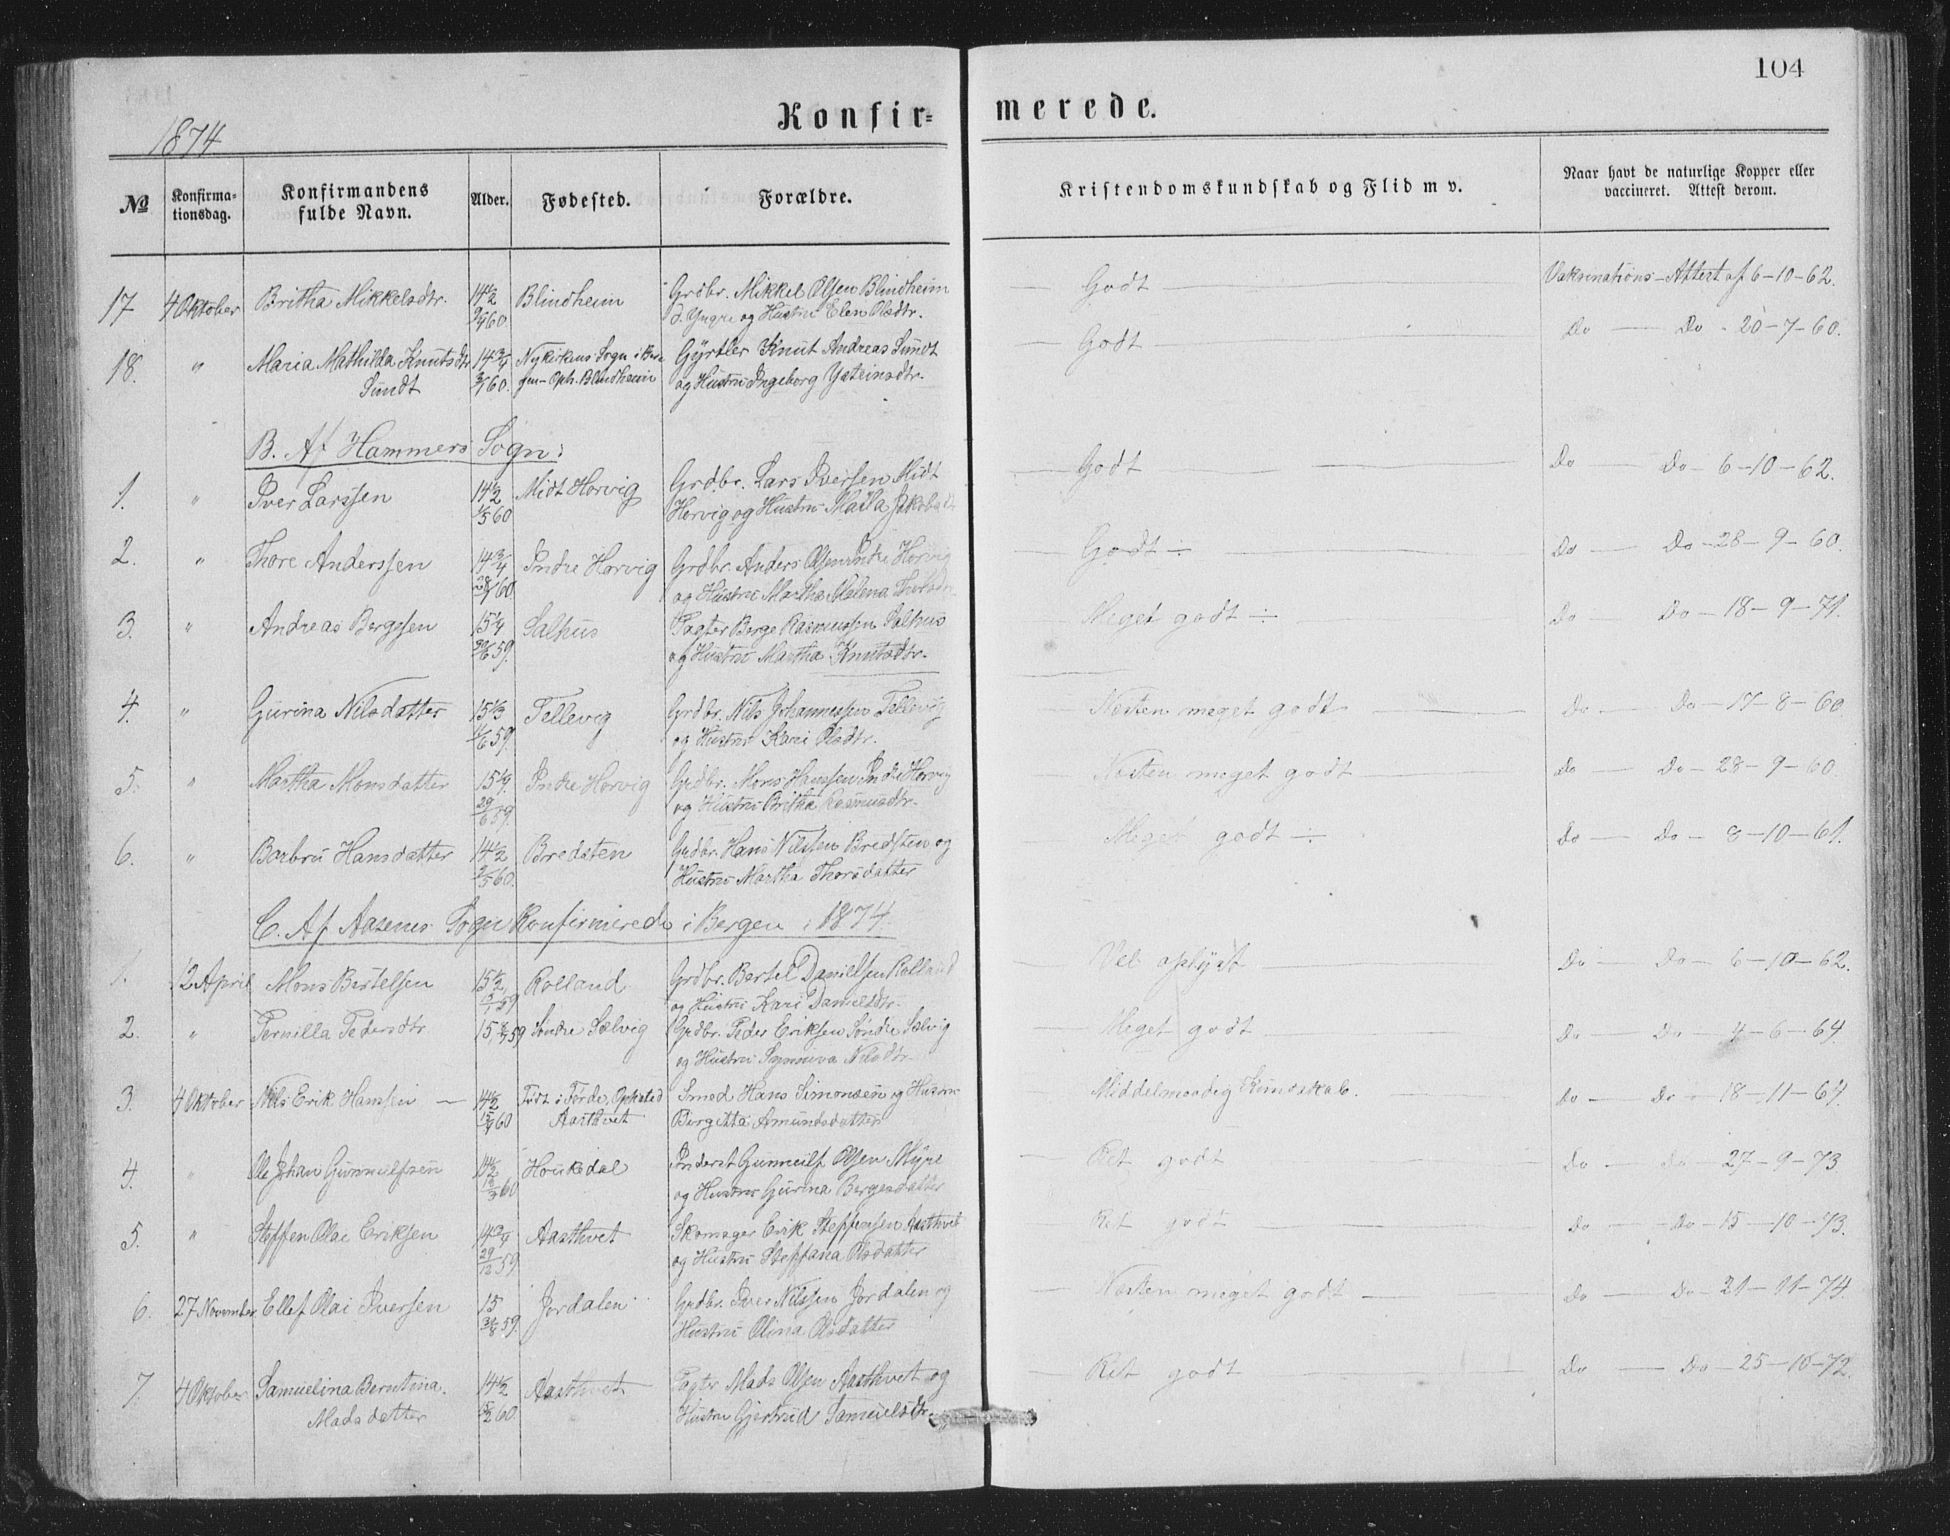 104
Konfir= merede.
1874
No
Konfirma-tionsdag.
Konfirmandens fulde Navn.
Alder.
Fødested.
Forældre.
Kristendomskundskab og Flid m v.
Naar havt de naturlige Kopper eller vaccineret. Attest derom.
17 4 Oktober Britha Mikkelsdtr. 14½ Blindheim Grdbr. Mikkel Olsen Blindheim Godt Vaksinations-Attest af 6-10-62.
60 og Hustru Elen Olsdtr.
18. " Maria Mathilda Knutsdtr 14¾ Nykirkens Sogn i Ber Gyrtler Knut Andreas Sundt Godt Do Do 20-7-60.
Sundt 60. gen - Oph. Blindheim og Hustru Ingeborg Ysteinsdtr.
B. Af Hammers Sogn:
1. " Iver Larssen 14½ Midt Horvig Grdbr. Lars Iversen Midt Godt Do Do 6-10-62.
1/5 60 Horvig og Hustru Jakobsdt
2. " Thore Anderssen 14¾ Indre Horvig Grdbr. Anders Olsen Indre Horvig Godt ÷ Do Do 28-9-60.
60 og Hustru Martha Malena
3. " Andreas Bergesen 15¼ Salhus Pagter Berge Rasmussen Salhus Meget godt ÷ Do Do 18-9-71.
30/6 59. og Hustru Martha Knutsdtr.
4. " Gurina Nilsdatter 15⅓ Tellevig Grdbr. Nils Johannessen Tellevig Næsten meget godt Do Do 17-8-60.
59. og Hustru Kari Olsdtr.
5. " Martha Monsdatter 15¼ Indre Horvig Grdbr. Mons Hanssen Indre Horvig Næsten meget godt Do Do 28-9-60.
29/6 59. og Hustru Britha Rasmusdtr.
6. " Barbru Hansdatter 14½ Bredsten Grdbr. Hans Nilssen Bredsten og Meget godt ÷ Do Do 8-10-61.
60. Hustru Martha Thorsdatter
C. Af Aasene Sogn Konfirmerede i Bergen i 1874.
1. 12 April Mons Bertelsen 15½ Rolland Grdbr. Bertel Danielsen Rolland Vel oplyst Do Do 6-10-62.
59 og Hustru Kari Danielsdtr.
2. " Pernilla Pedersdtr 15 59 Søndre Sælvig Grdbr. Peder Eriksen Søndre Sælvig Meget godt Do Do 4-6-64.
og Hustru Synneva Nilsdtr
3. 4 Oktober Nils Erik Hanssen 14½ Født i Førde, Opholsted Smed Hans Simonsen og Hustru Middelmaadig Kundskab. Do Do 18-11-61.
15/4 60 Aasthvet Birgitta Amundsdatter
4. " Ole Johan Gunnulfsen 14½ Houkedal Inderst Gunnulf Olsen Myre Ret godt Do Do 27-9-73
60 og Hustru Gurina Bergesdatter
5. " Steffen Olai Eriksen 14¾ Aasthvet Skomager Erik Steffensen Aasthvet Ret godt Do Do 15-10-73.
29/12 59 og Hustru Steffana Olsdatter
6. 27 November Ellef Olai Iversen 15 Jordalen Grdbr. Iver Nilssen Jordalen og Næsten meget godt Do Do 21-11-74.
59. Hustru Olina Olsdatter
7. 4 Oktober Samuelina Berntina 14½ Aasthvet Pagter Mads Olsen Aasthvet og Ret godt Do Do 25-10-72.
Madsdatter 60. Hustru Gjertrud Samuelsdtr.